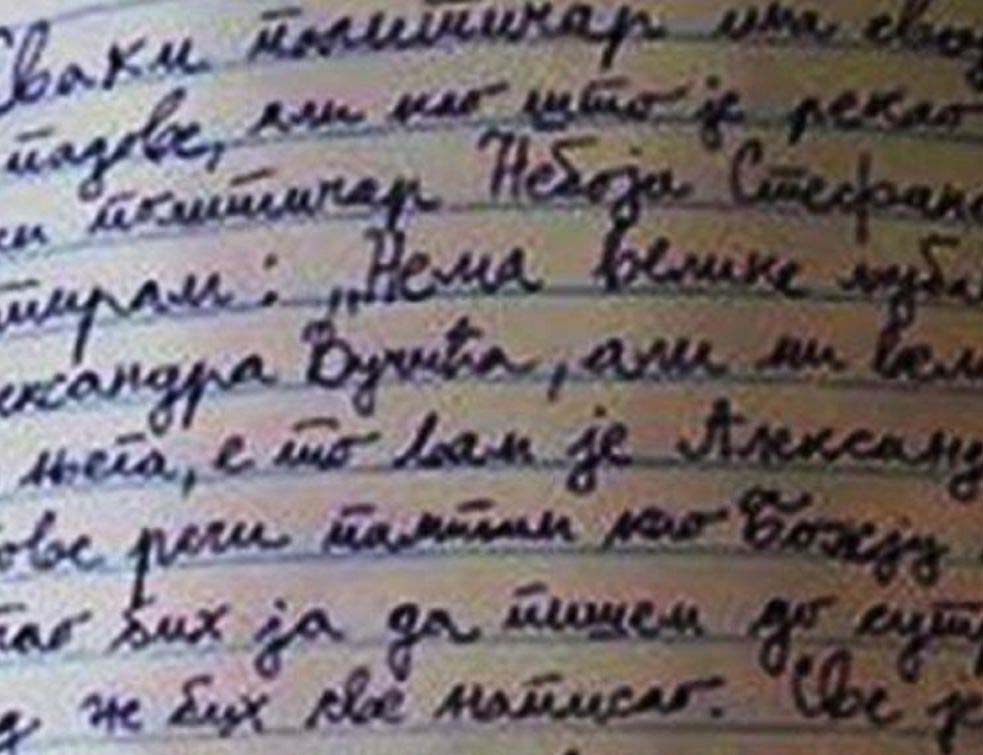 Сваки политичар има сво
падове, али као што је рекао
ки политичар Небојa Стефано
тирам: „Нема велике љуба
ександра Вучића, али ни вели
њега, е то вам је Александ
ове речи памтим као Божју
бих ја да пишем до сутр
не бих све написао. Све је